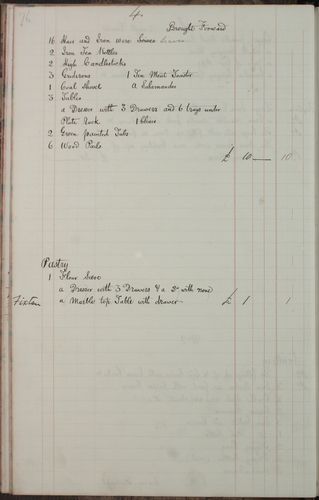 76
4
Brought Forward
16 Hair and Iron wire Seives
2 Iron Tea Kettles
2 High Candlesticks
3 Cinderons 1 Tin Meat Taister
1 Coal Shovel A Salamander
3 Tables
a Dresser with 3 Drawers and 6 trays under
Plate Rack 1
2 Green painted Tubs
6 Wood Pails
£ 10 — 10
Pastry
1 Flour Seive
a Dresser with 3 Drawers & a Do with none
Fixture a Marble top Table with drawer £ 1 1